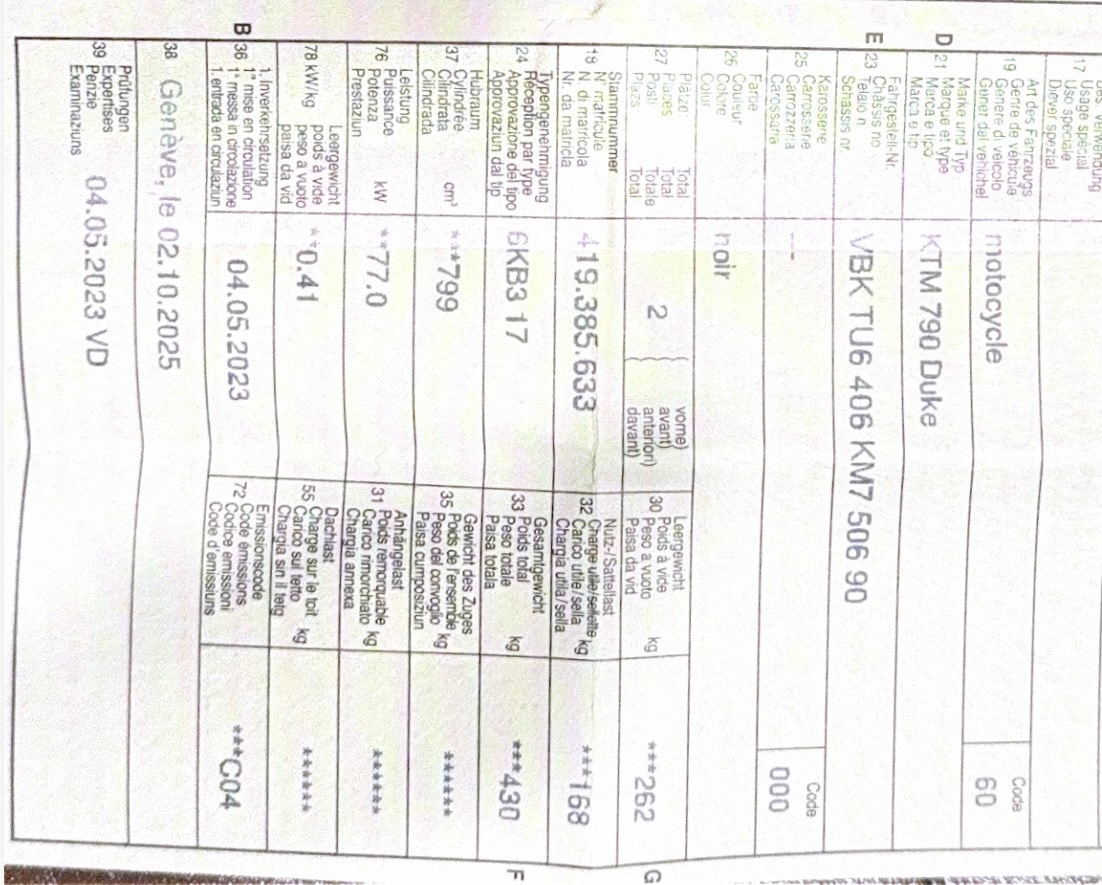 Bes. Verwendung
17 Usage spécial
Uso speciale
Diever spezial
Art des Fahrzeugs
19 Genre de véhicule
Genere di veicolo
Gener dal vehichel
motocycle
Code
60
Marke und Typ
D 21 Marque et type
Marca e tipo
Marca e tip
KTM 790 Duke
Fahrgestell-Nr.
E 23 Châssis no
Telaio n
Schassis nr.
VBK TU6 406 KM7 506 90
Karosserie
25 Carrosserie
Carrozzeria
Carossaria
---
Code
000
Farbe
26 Couleur
Colore
Colur
noir
Plätze: Total
27 Places Total
Posti Totale
Plazs Total
2
( vorne)
avant)
( anteriori)
davant)
Leergewicht
30 Poids à vide
Peso a vuoto kg
Paisa da vid
***262
G
Stammnummer
18 N° matricule
N. di matricola
Nr. da matricla
419.385.633
Nutz-/Sattellast
32 Charge utile/sellette kg
Carico utile/sella
Chargia utila/sella
***168
Typengenehmigung
24 Réception par type
Approvazione del tipo
Approvaziun dal tip
6KB3 17
Gesamtgewicht
33 Poids total
Peso totale kg
Paisa totala
***430
F
Hubraum
37 Cylindrée
Cilindrata cm³
Cilindrada
***799
Gewicht des Zuges
35 Poids de l'ensemble kg
Peso del convoglio
Paisa cumposiziun
******
Leistung
76 Puissance
Potenza kW
Prestaziun
**77.0
Anhängelast
31 Poids remorquable kg
Carico rimorchiato
Chargia annexa
******
Leergewicht
78 kW/kg poids à vide
peso a vuoto
paisa da vid
**0.41
Dachlast
55 Charge sur le toit kg
Carico sul tetto
Chargia sin il tetg
******
B
1. Inverkehrsetzung
36 1re mise en circulation
1a messa in circolazione
1. entrada en circulaziun
04.05.2023
Emissionscode
72 Code émissions
Codice emissioni
Code d'emissiuns
***C04
38 Genève, le 02.10.2025
Prüfungen
39 Expertises
Perizie
Examinaziuns
04.05.2023 VD